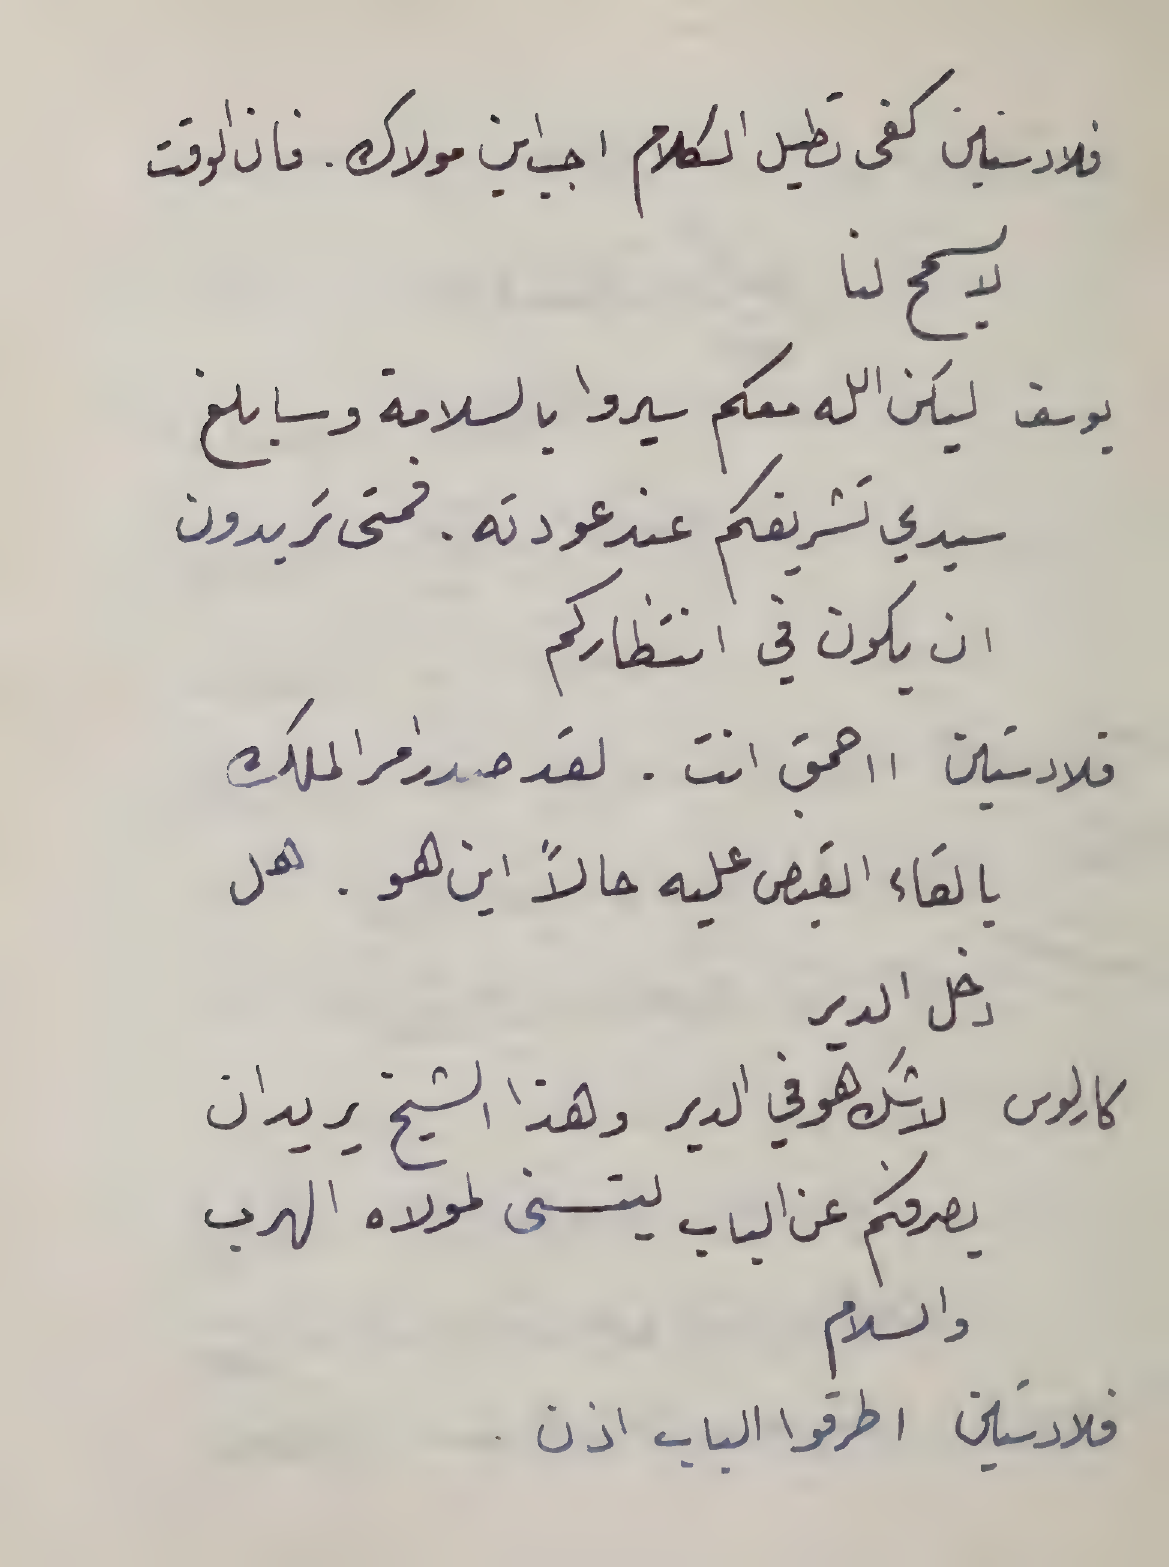 فلادستين كفى تطيل الكلام اجب اين مولاك . فان الوقت
لا يسمح لنا
يوسف ليكن الله معكم سيروا بالسلامة وسابلغ
سيدي تشريفكم عند عودته . فمتى تريدون
ان يكون في انتظاركم
فلادستين ااحمق انت . لقد صدر امر الملك
بالقاء القبض عليه حالاً اين هو . هل
دخل الدير
كارلوس لا شك هو في الدير وهذا الشيخ يريد ان
يصرفكم عن الباب ليتسنى لمولاه الهرب
والسلام
فلادستين اطرقوا الباب اذن .